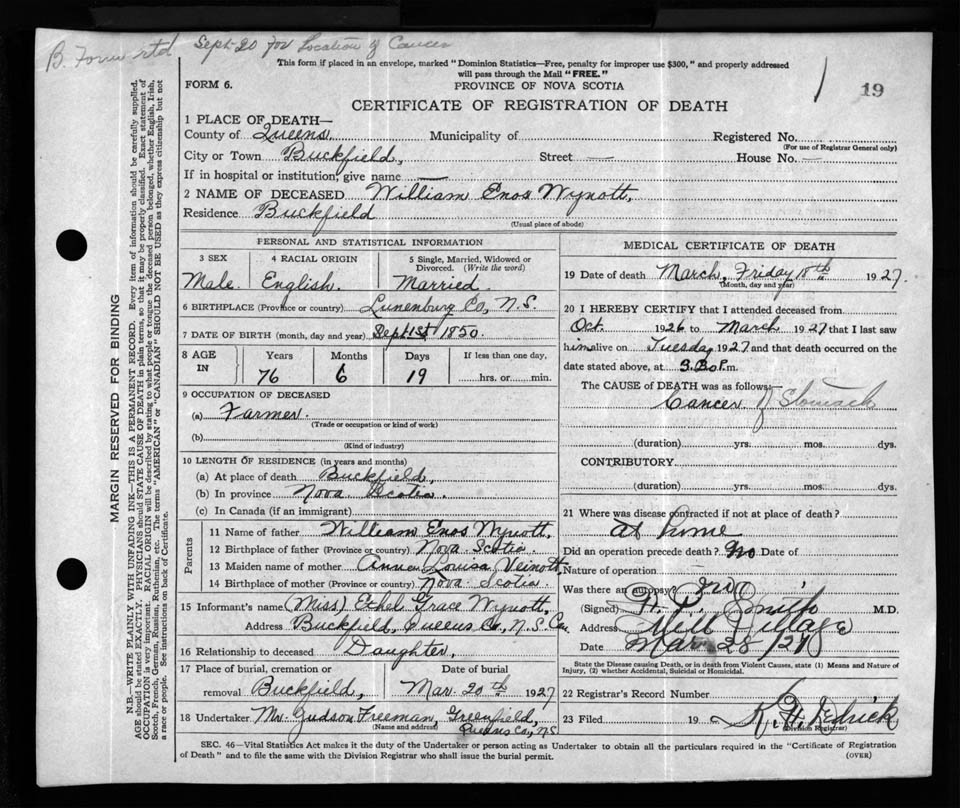 B. Form rtd Sept-20 for Location of Cancer
This form if placed in an envelope, marked "Dominion Statistics—Free, penalty for improper use $300," and properly addressed
will pass through the Mail "FREE."
FORM 6.
PROVINCE OF NOVA SCOTIA
19
CERTIFICATE OF REGISTRATION OF DEATH
1 PLACE OF DEATH—
County of Queens Municipality of Registered No.
(For use of Registrar General only)
City or Town Buckfield, Street — House No. —
If in hospital or institution, give name —
2 NAME OF DECEASED William Enos Wynott,
Residence Buckfield
(Usual place of abode)
PERSONAL AND STATISTICAL INFORMATION
3 SEX 4 RACIAL ORIGIN 5 Single, Married, Widowed or
Divorced. (Write the word)
Male. English. Married.
6 BIRTHPLACE (Province or country) Lunenburg Co, N.S.
7 DATE OF BIRTH (month, day and year) Sept 1st 1850.
8 AGE IN Years Months Days If less than one day,
76 6 19 hrs. or min.
9 OCCUPATION OF DECEASED
(a) Farmer.
(Trade or occupation or kind of work)
(b)
(Kind of industry)
10 LENGTH OF RESIDENCE (in years and months)
(a) At place of death Buckfield,
(b) In province Nova Scotia.
(c) In Canada (if an immigrant)
Parents
11 Name of father William Enos Wynott,
12 Birthplace of father (Province or country) Nova Scotia.
13 Maiden name of mother Anna Louisa Veinott
14 Birthplace of mother (Province or country) Nova Scotia.
15 Informant's name (Miss) Ethel Grace Wynott,
Address Buckfield, Queens Co, N.S. Can
16 Relationship to deceased Daughter,
17 Place of burial, cremation or Date of burial
removal Buckfield, Mar. 20th 1927
18 Undertaker Mr. Judson Freeman, Greenfield,
(Name and address) Queens Co, N.S.
MEDICAL CERTIFICATE OF DEATH
19 Date of death March, Friday 18th 1927.
(Month, day and year)
20 I HEREBY CERTIFY that I attended deceased from
Oct. 1926 to March 1927 that I last saw
him alive on Tuesday 1927 and that death occurred on the
date stated above, at 3.30 P.m.
The CAUSE OF DEATH was as follows:—
Cancer of Stomach
(duration) yrs. mos. dys.
CONTRIBUTORY.
(duration) yrs. mos. dys.
21 Where was disease contracted if not at place of death?
At home
Did an operation precede death? No Date of
Nature of operation
Was there an autopsy? No
(Signed) Smith M.D.
Address Mill Village
Date Mar. 28/27
State the Disease causing Death, or in death from Violent Causes, state (1) Means and Nature of
Injury, (2) whether Accidental, Suicidal or Homicidal.
22 Registrar's Record Number
23 Filed 19
(Division Registrar)
SEC. 46—Vital Statistics Act makes it the duty of the Undertaker or person acting as Undertaker to obtain all the particulars required in the "Certificate of Registration
of Death" and to file the same with the Division Registrar who shall issue the burial permit. (OVER)
MARGIN RESERVED FOR BINDING
N.B.—WRITE PLAINLY WITH UNFADING INK—THIS IS A PERMANENT RECORD. Every item of information should be carefully supplied.
AGE should be stated EXACTLY. PHYSICIANS should STATE CAUSE OF DEATH in plain terms, so that it may be properly classified. Exact statement of
OCCUPATION is very important. RACIAL ORIGIN will be described by stating to what people or tongue the deceased person belonged, whether English, Irish,
Scotch, French, German, Russian, Ruthenian, etc. The terms "AMERICAN" or "CANADIAN" SHOULD NOT BE USED as they express citizenship but not
a race or people. See instructions on back of Certificate.